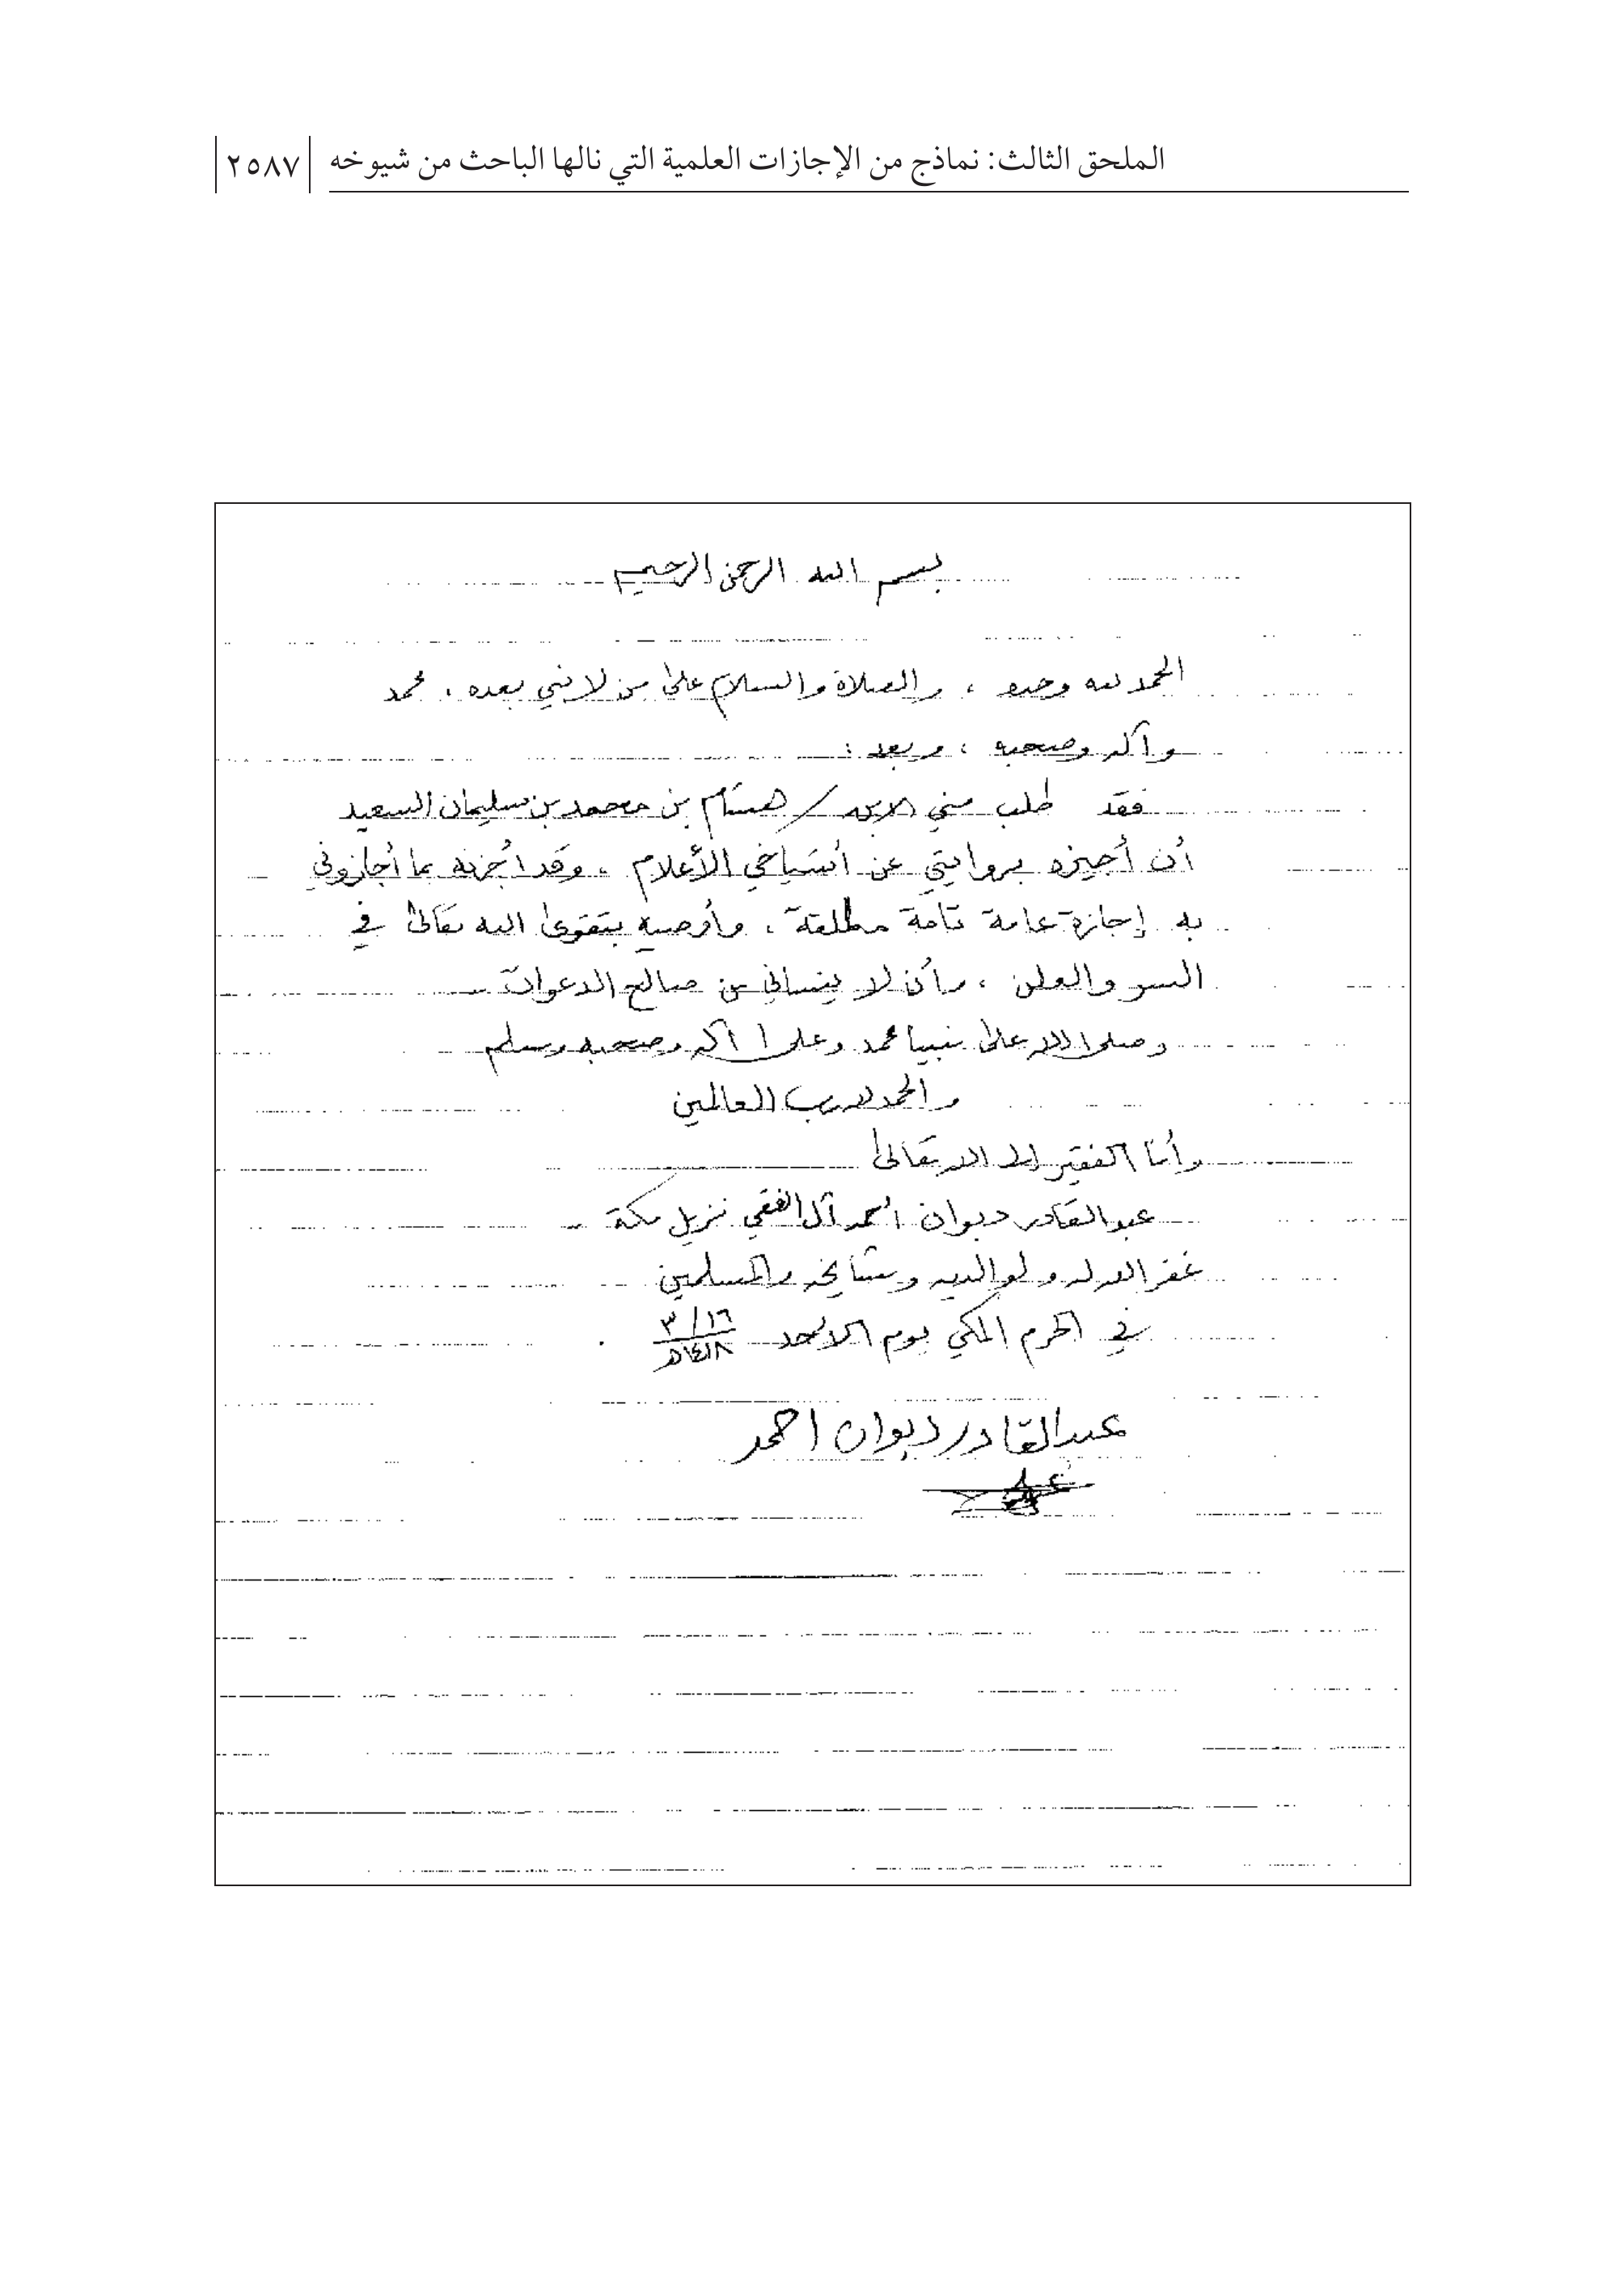 الملحق الثالث: نماذج من الإجازات العلمية التي نالها الباحث من شيوخه ٢٥٨٧
بسم الله الرحمن الرحيم
الحمد لله وحده ، والصلاة والسلام على من لا نبي بعده ، محمد
وآله وصحبه ، وبعد :
فقد طلب مني الابن / هشام بن محمد بن سليمان السعيد
أن أجيزه بروايتي عن أشياخي الأعلام ، وقد أجزته بما أجازوني
به إجازة عامة تامة مطلقة ، وأوصيه بتقوى الله تعالى في
السر والعلن ، وأن لا ينساني من صالح الدعوات
وصلى الله على نبينا محمد وعلى آله وصحبه وسلم
والحمد لله رب العالمين
وأنا الفقير إلى الله تعالى
عبد القادر ديوان أحمد آل الفقي نزيل مكة
غفر الله له ولوالديه ومشايخه والمسلمين
في الحرم المكي يوم الأحد ١٦/٣
١٤١٨هـ
عبد القادر ديوان احمد